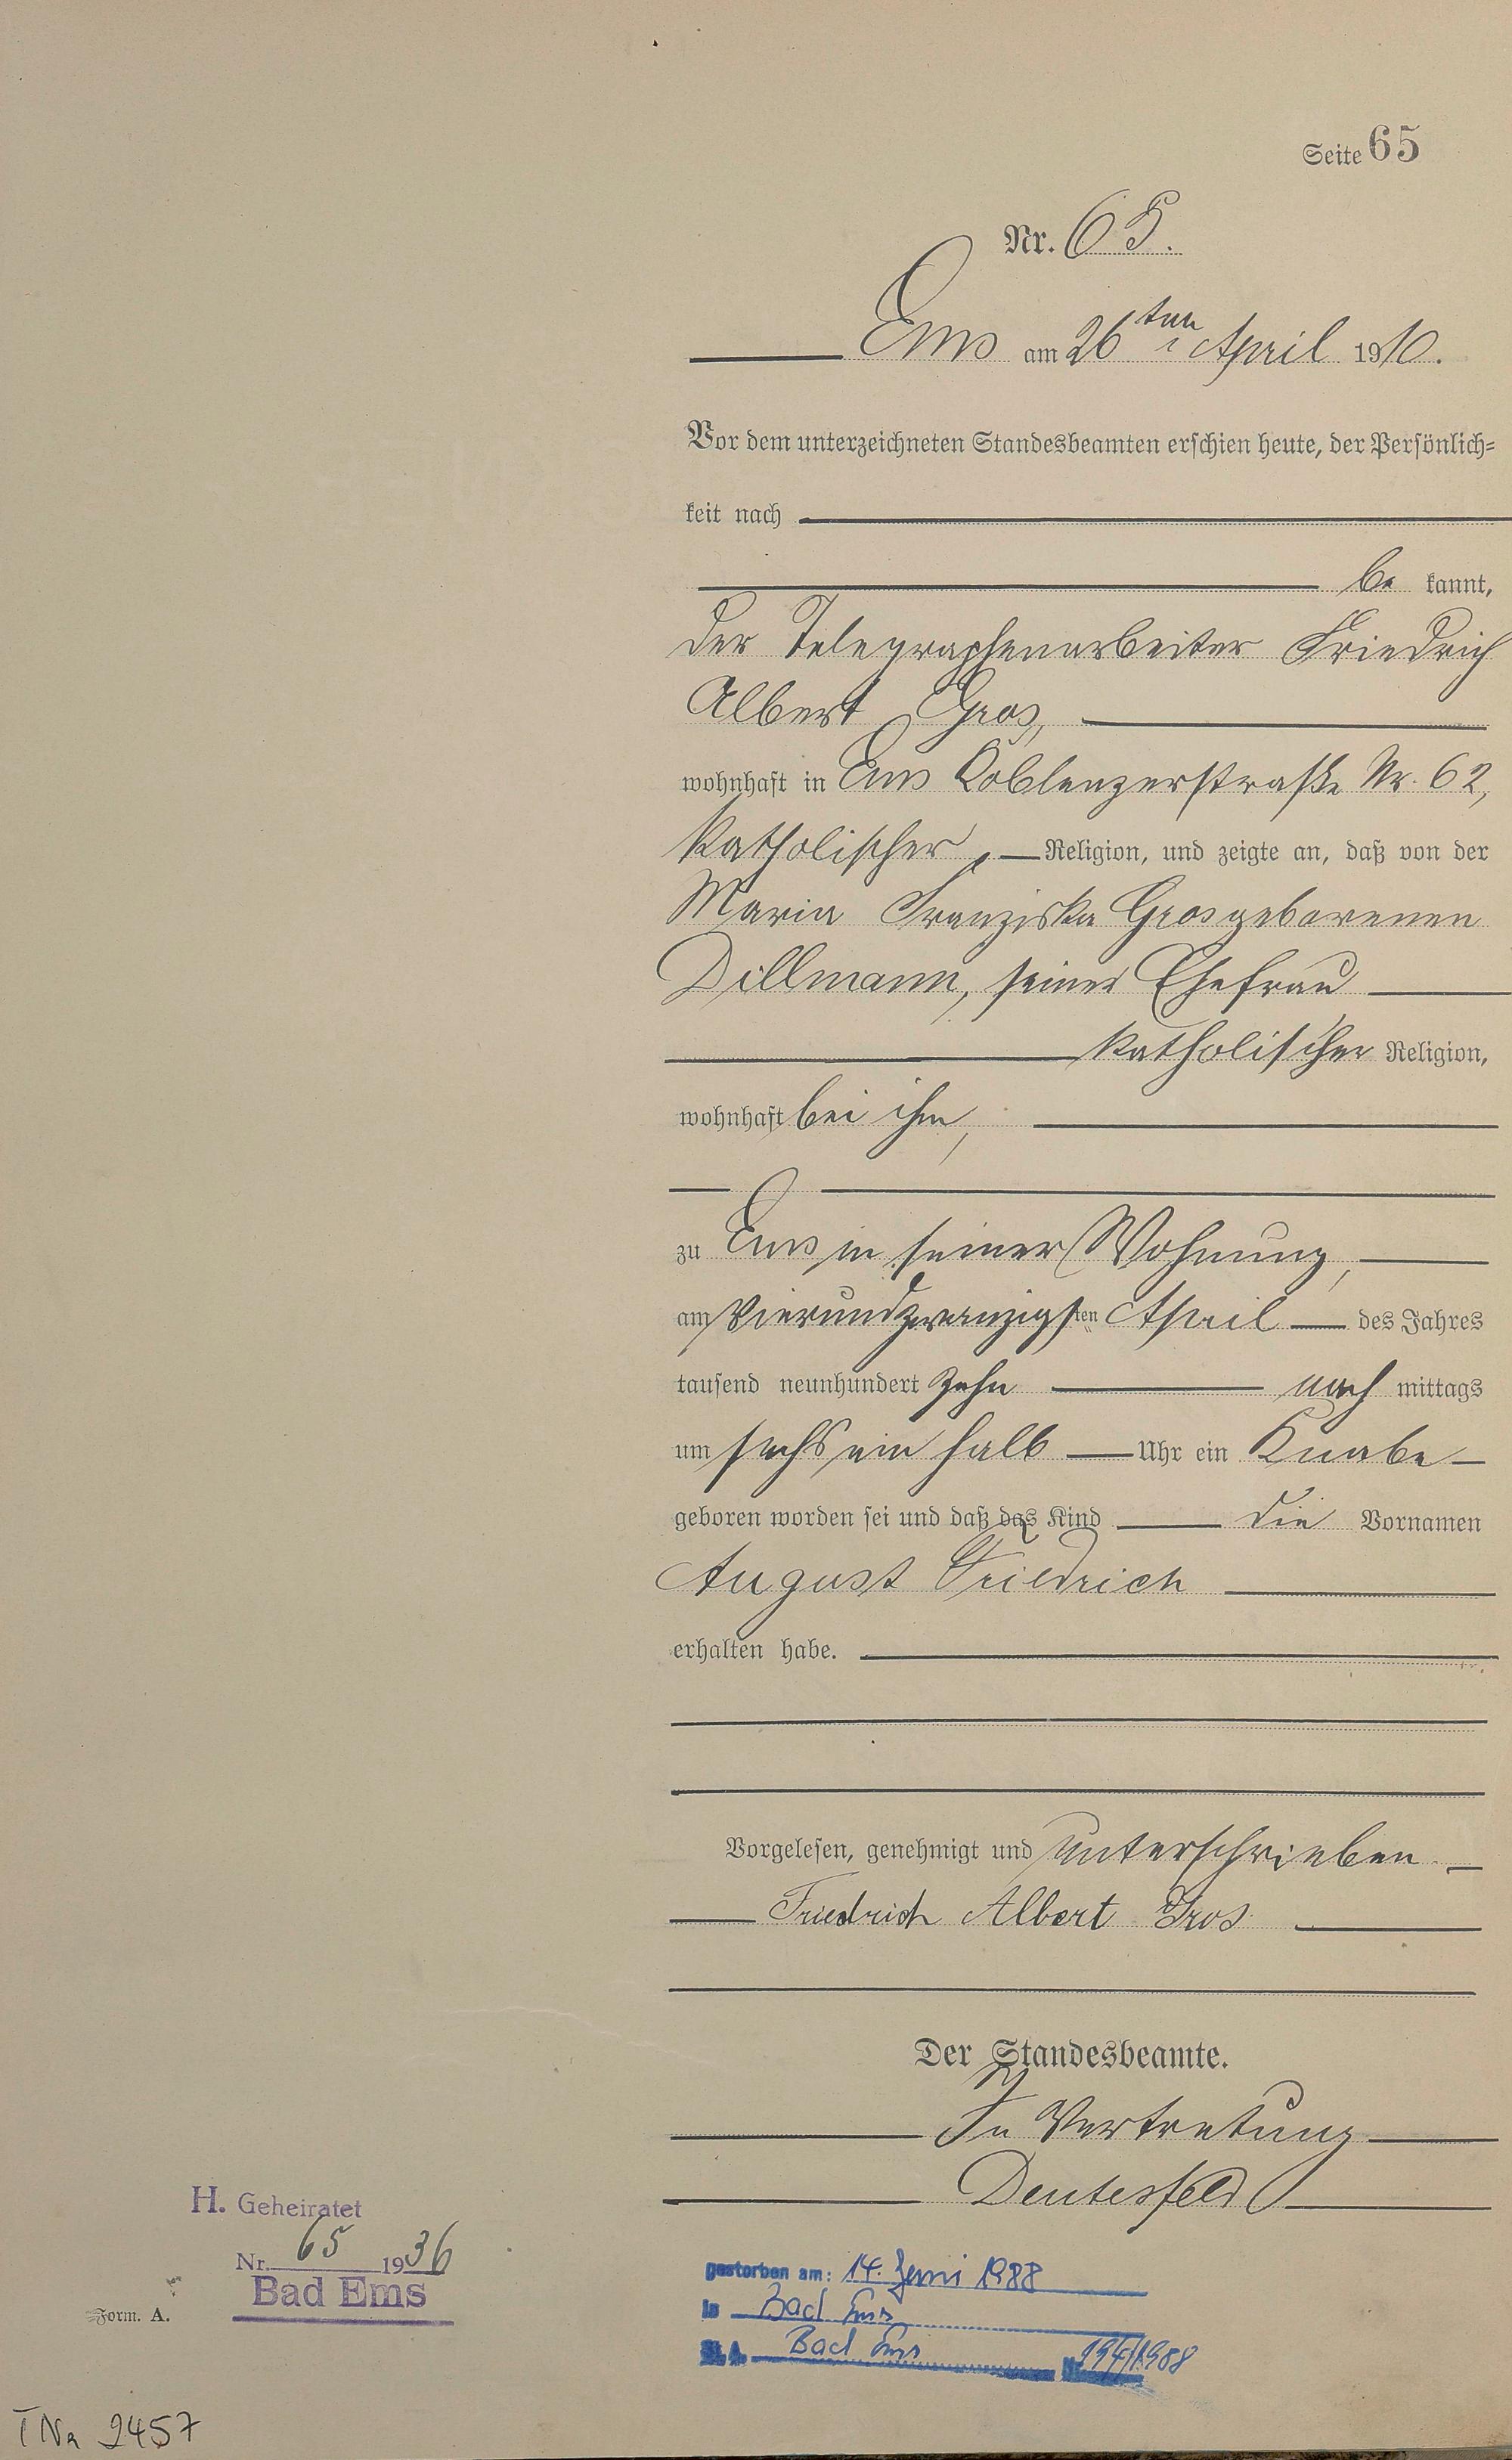 Seite 65
Nr. 65.
Ems am 26ten April 1910.
Vor dem unterzeichneten Standesbeamten erschien heute, der Persönlich-
keit nach
be kannt,
der Telegraphenarbeiter Friedrich
Albert Gros,
wohnhaft in Ems Koblenzerstraße Nr. 62,
katholischer Religion, und zeigte an, daß von der
Maria Franziska Gros geborenen
Dillmann, seiner Ehefrau
katholischer Religion,
wohnhaft bei ihm,
zu Ems in seiner Wohnung,
am vierundzwanzigsten April des Jahres
tausend neunhundert zehn nach mittags
um sechs ein halb Uhr ein Knabe
geboren worden sei und daß das Kind die Vornamen
August Friedrich
erhalten habe.
Vorgelesen, genehmigt und unterschrieben
Friedrich Albert Gros
Der Standesbeamte.
In Vertretung
Deutesfeld
H. Geheiratet
Nr. 65 1936
Bad Ems
Form. A.
gestorben am: 14. Juni 1988
in Bad Ems
St. A. Bad Ems Nr. 194/1988
2457